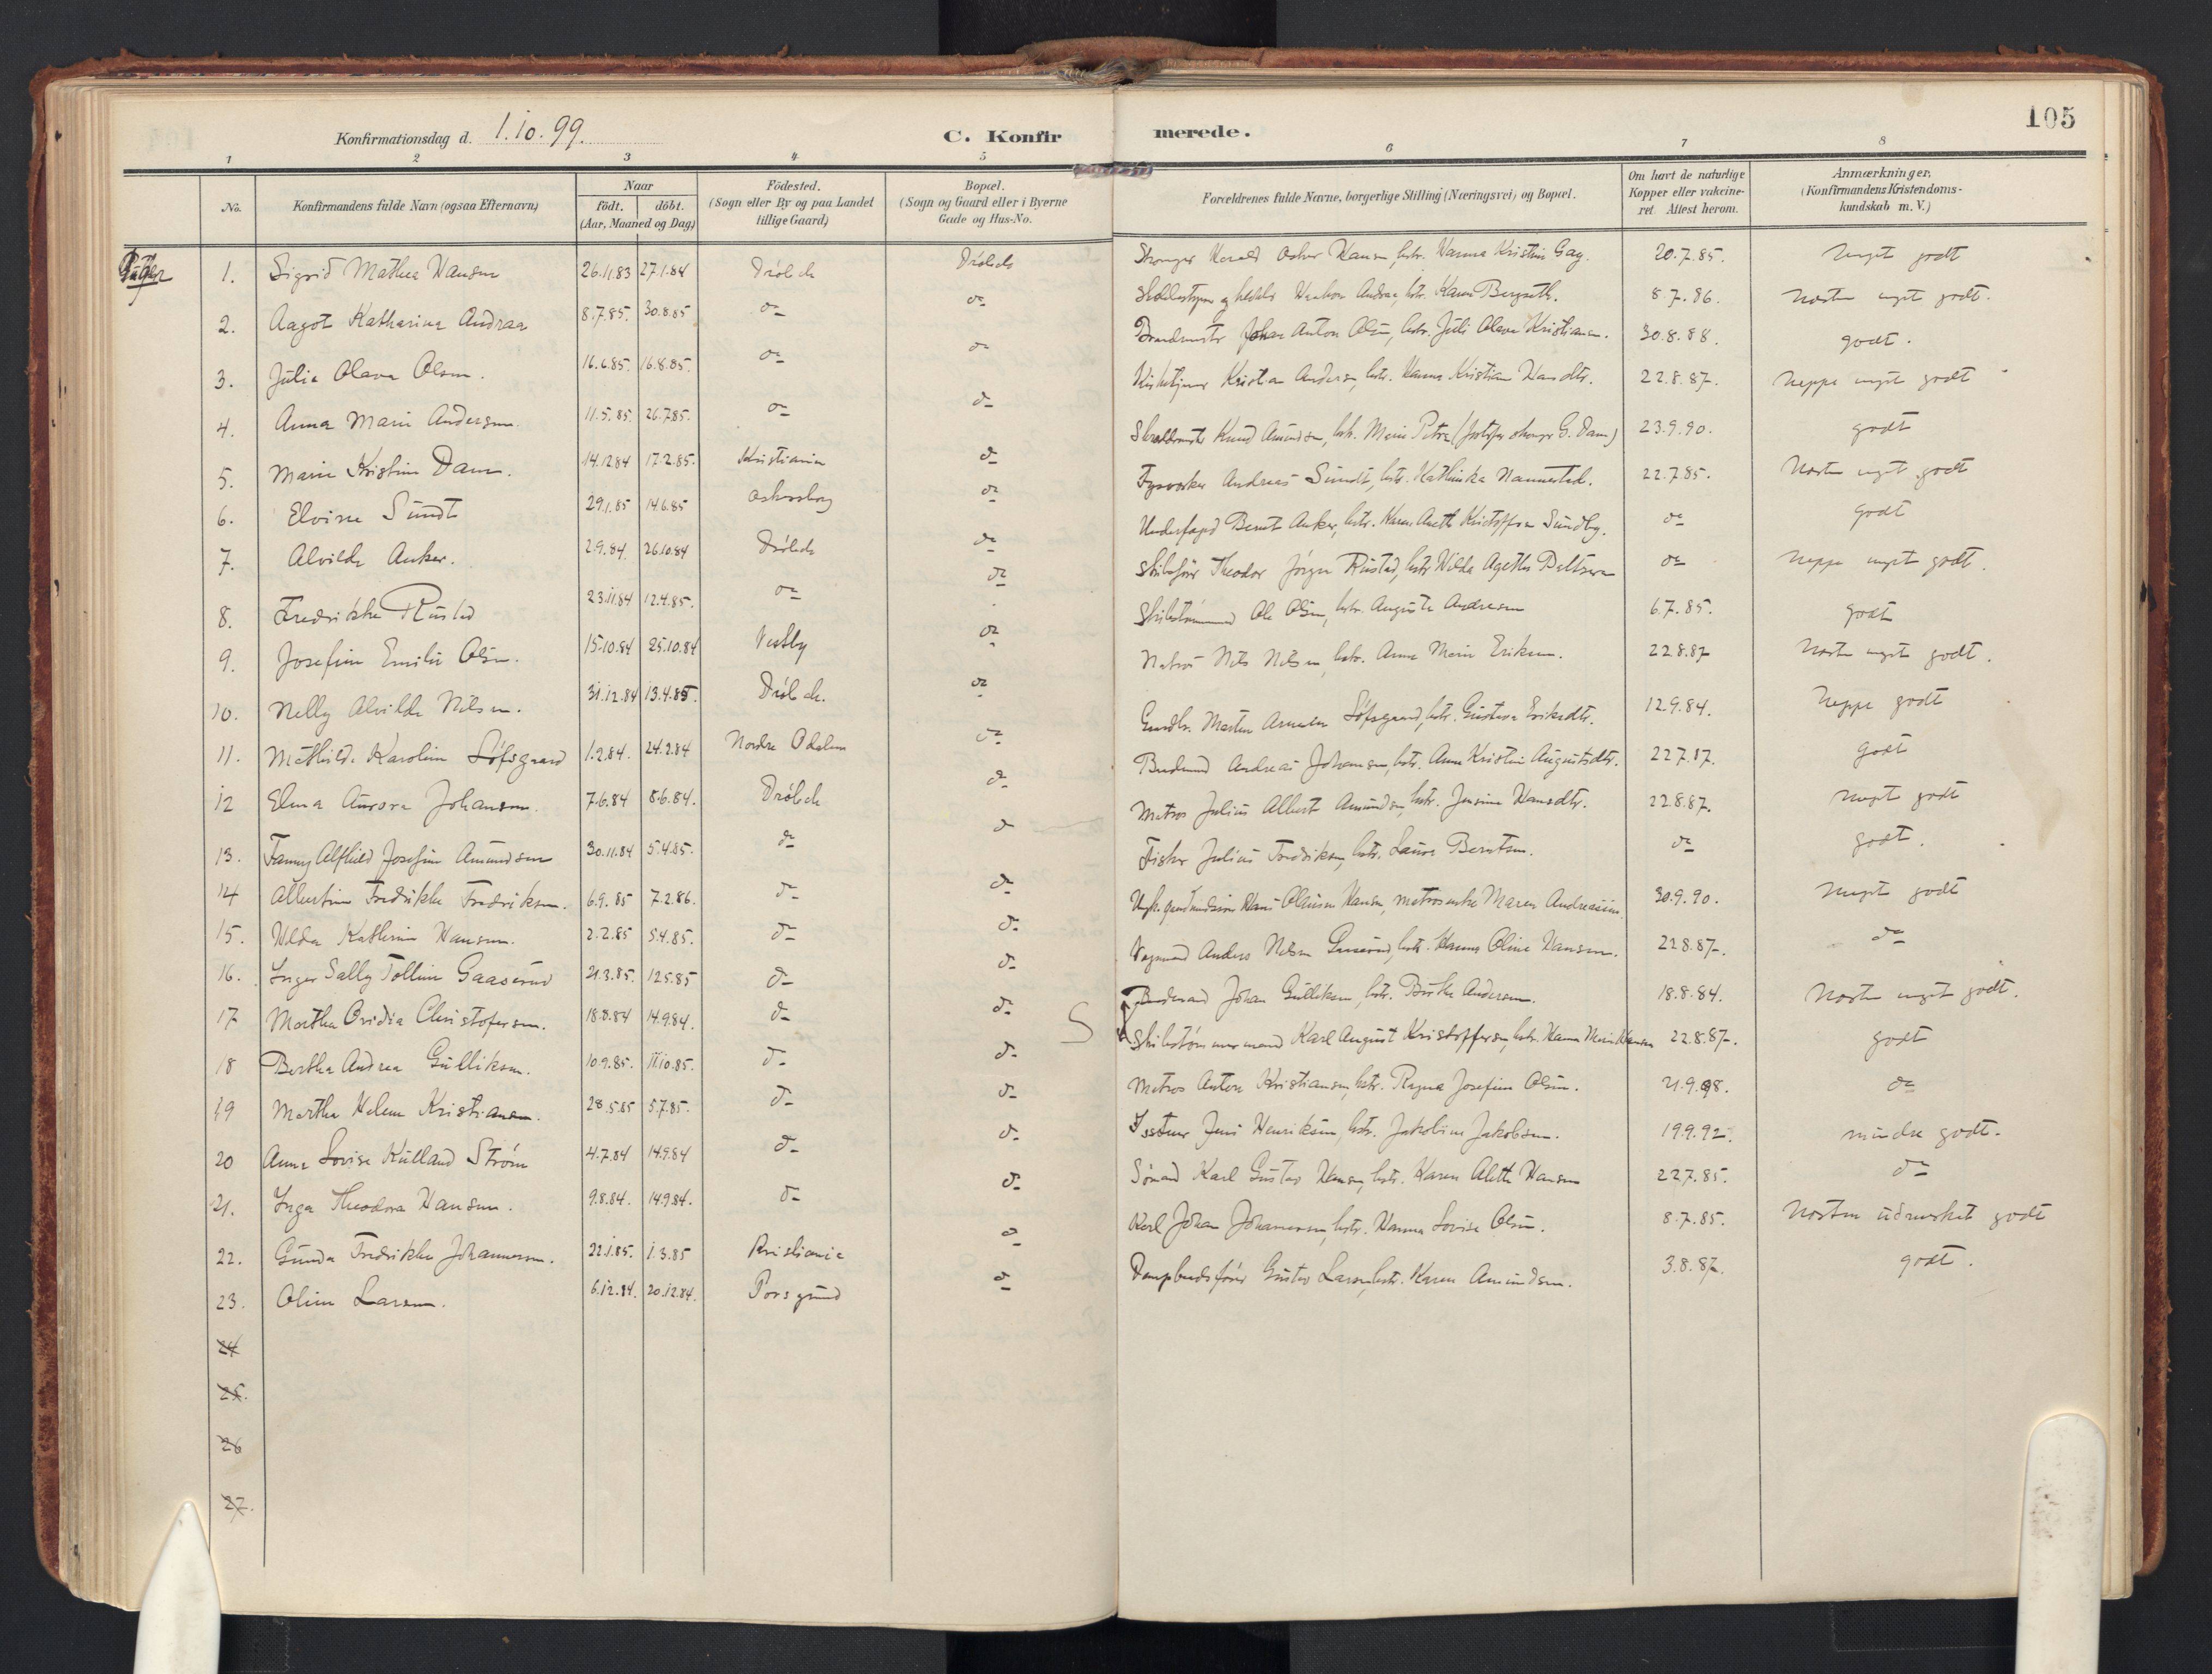 105
Konfirmationsdag d. 1.10.99.
C. Konfirmerede.
1 2 3 4 5 6 7 8
No.
Konfirmandens fulde Navn (ogsaa Efternavn)
Naar
födt. döbt.
(Aar, Maaned og Dag)
Födested.
(Sogn eller By og paa Landet
tillige Gaard)
Bopæl.
(Sogn og Gaard eller i Byerne
Gade og Hus-No.
Forældrenes fulde Navne, borgerlige Stilling (Næringsvei) og Bopæl.
Om havt de naturlige
Kopper eller vakcine-
ret. Attest herom.
Anmærkninger.
(Konfirmandens Kristendoms-
kundskab m. V.)
Piger
1. Sigrid Mathea Hansen 26.11.83 27.1.84 Dröbak Dröbak Hansen, hstr. Hanna Kristin 20.7.85. meget godt
2. Aagot Katharina Andraa 8.7.85. 30.8.85 do do Andraa, hstr. Karen Bergseth. 8.7.86. næsten meget godt.
3. Julie Olava Olsen. 16.6.85. 16.8.85. do do Johan Anton Olsen, hstr. Juli Olava Kristiansen. 30.8.88. godt.
4. Anna Marie Andersen. 11.5.85. 26.7.85. do do Kirketjener Kristian Andersen, hstr. Hanna Kristiane Hansdtr. 22.8.87. neppe meget godt
5. Marie Kristine Dam. 14.12.84 17.2.85. Kristiania do Knud Amundsen, hstr. Marie Petra G. Dam) 23.9.90. godt
6. Elvine Sundt 29.1.85 14.6.85 do Fyrvokter Andreas Sundt, hstr. Kathinka 22.7.85. Næsten meget godt
7. Alvilde Anker. 2.9.84. 26.10.84 Dröbak do Bernt Anker, hstr. Karen Sundby. do godt
8. Fredrikke Rustad 23.11.84 12.4.85. do do Skibsförer Theodor Jörgen Rustad, hstr. do neppe meget godt.
9. Josefine Emilie Olsen. 15.10.84 25.10.84 Vestby do Skibstömmermand Ole Olsen, hstr. Auguste Andresen 6.7.85. godt
10. Nelly Alvilde Nilsen. 31.12.84 13.4.85. Dröbak. do Matros Nils Nilsen, hstr. Anna Marie Eriksen. 22.8.87 næsten meget godt.
11. Mathilde Karoline Löfsgaard 1.2.84. 24.2.84 Nordre Odalen do Gaardbr. Martin Löfsgaard, hstr. Gustava Eriksdtr. 12.9.84. neppe godt
12 Elma Aurora Johansen. 7.6.84 8.6.84. Dröbak do Andreas Johansen, hstr. Anne Kristine Augustsdtr. 22.7.87. godt
13. Fanny Alfhild Josefine Amundsen 30.11.84 5.4.85. do do Matros Julius Albert Amundsen, hstr. Josine Hansdtr. 22.8.87. meget godt
14 Albertine Fredrikke Fredriksen. 6.9.85 7.2.86. do do Fisker Julius Fredriksen, hstr. Laura Berntsen. do godt.
15. Hilda Kathrine Hansen. 2.2.85 5.4.85. do do Hans Hansen, Maren Andreassen. 30.9.90. meget godt
16. Inger Sally Tolline Gaaserud 21.3.85. 12.5.85 do do Anders Nilsen hstr. Hanna Oline Hansen. 22.8.87. do
17 Martha Ovidia Christofersen. 18.8.84 14.9.84. do do Johan Gulliksen, hstr. Andersen. 18.8.84. næsten meget godt.
18 Bertha Andrea Gulliksen. 10.9.85. 11.10.85. do do S Skibstömmermand Karl August Kristoffersen, hstr. Hanna Marie Hansen 22.8.87. godt
19 Martha Helene Kristiansen. 28.5.85 5.7.85. do do Matros Anton Kristiansen, hstr. Ragna Josefine Olsen. 21.9.98. do
20 Anna Lovise Kulland Ström 4.7.84 14.9.84 do do Jens Henriksen, hstr. Jakobine Jakobsen. 19.9.92. mindre godt.
21. Inga Theodora Hansen. 9.8.84. 14.9.84. do do Sömand Karl Gustav Hansen, hstr. Karen Aleth Hansen 22.7.85. do
22. Gunda Fredrikke Johannesen. 22.1.85. 1.3.85 Kristiania do Karl Johan Johannesen, hstr. Hanna Lovise Olsen. 8.7.85. Næsten udmerket godt
23. Oline Larsen. 6.12.84. 20.12.84. Porsgrund do Gustav Larsen, hstr. Karen Amundsen. 3.8.87. godt.
24
25.
26
27.